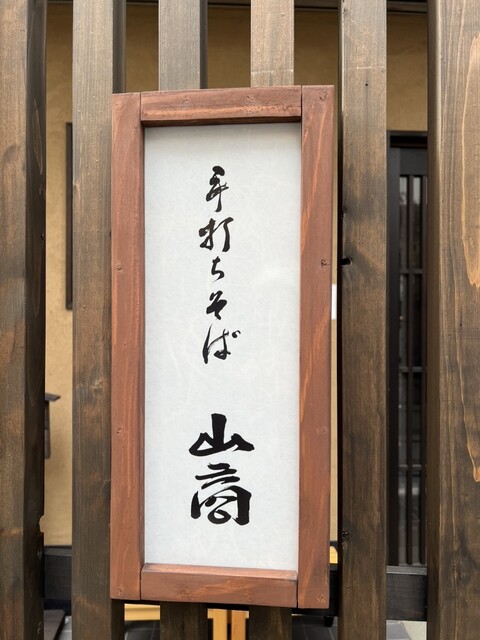 手打ちそば
山商